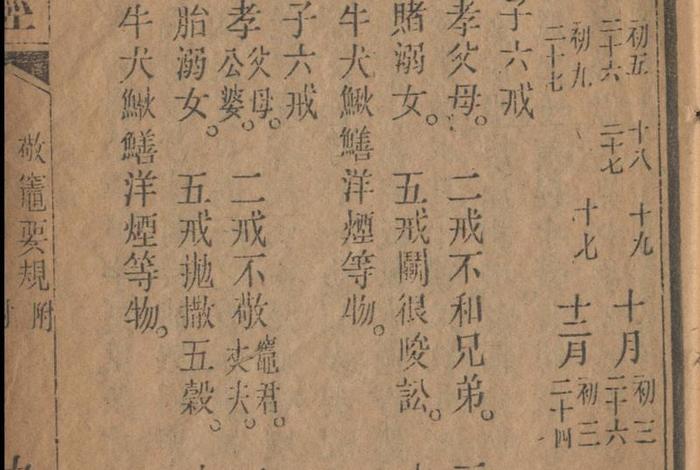 初五 十八 十九 十月 初三
二十六 二十七 二十六
初九 十七 十二月 初三
二十七 二十四
子六戒
孝父母。 二戒不和兄弟。
賭溺女。 五戒鬭很唆訟。
牛犬鰍鱔洋煙等物。
子六戒
孝父母。公婆。 二戒不敬竈君。丈夫。
胎溺女。 五戒抛撒五穀。
牛犬鰍鱔洋煙等物。
敬竈要規 附